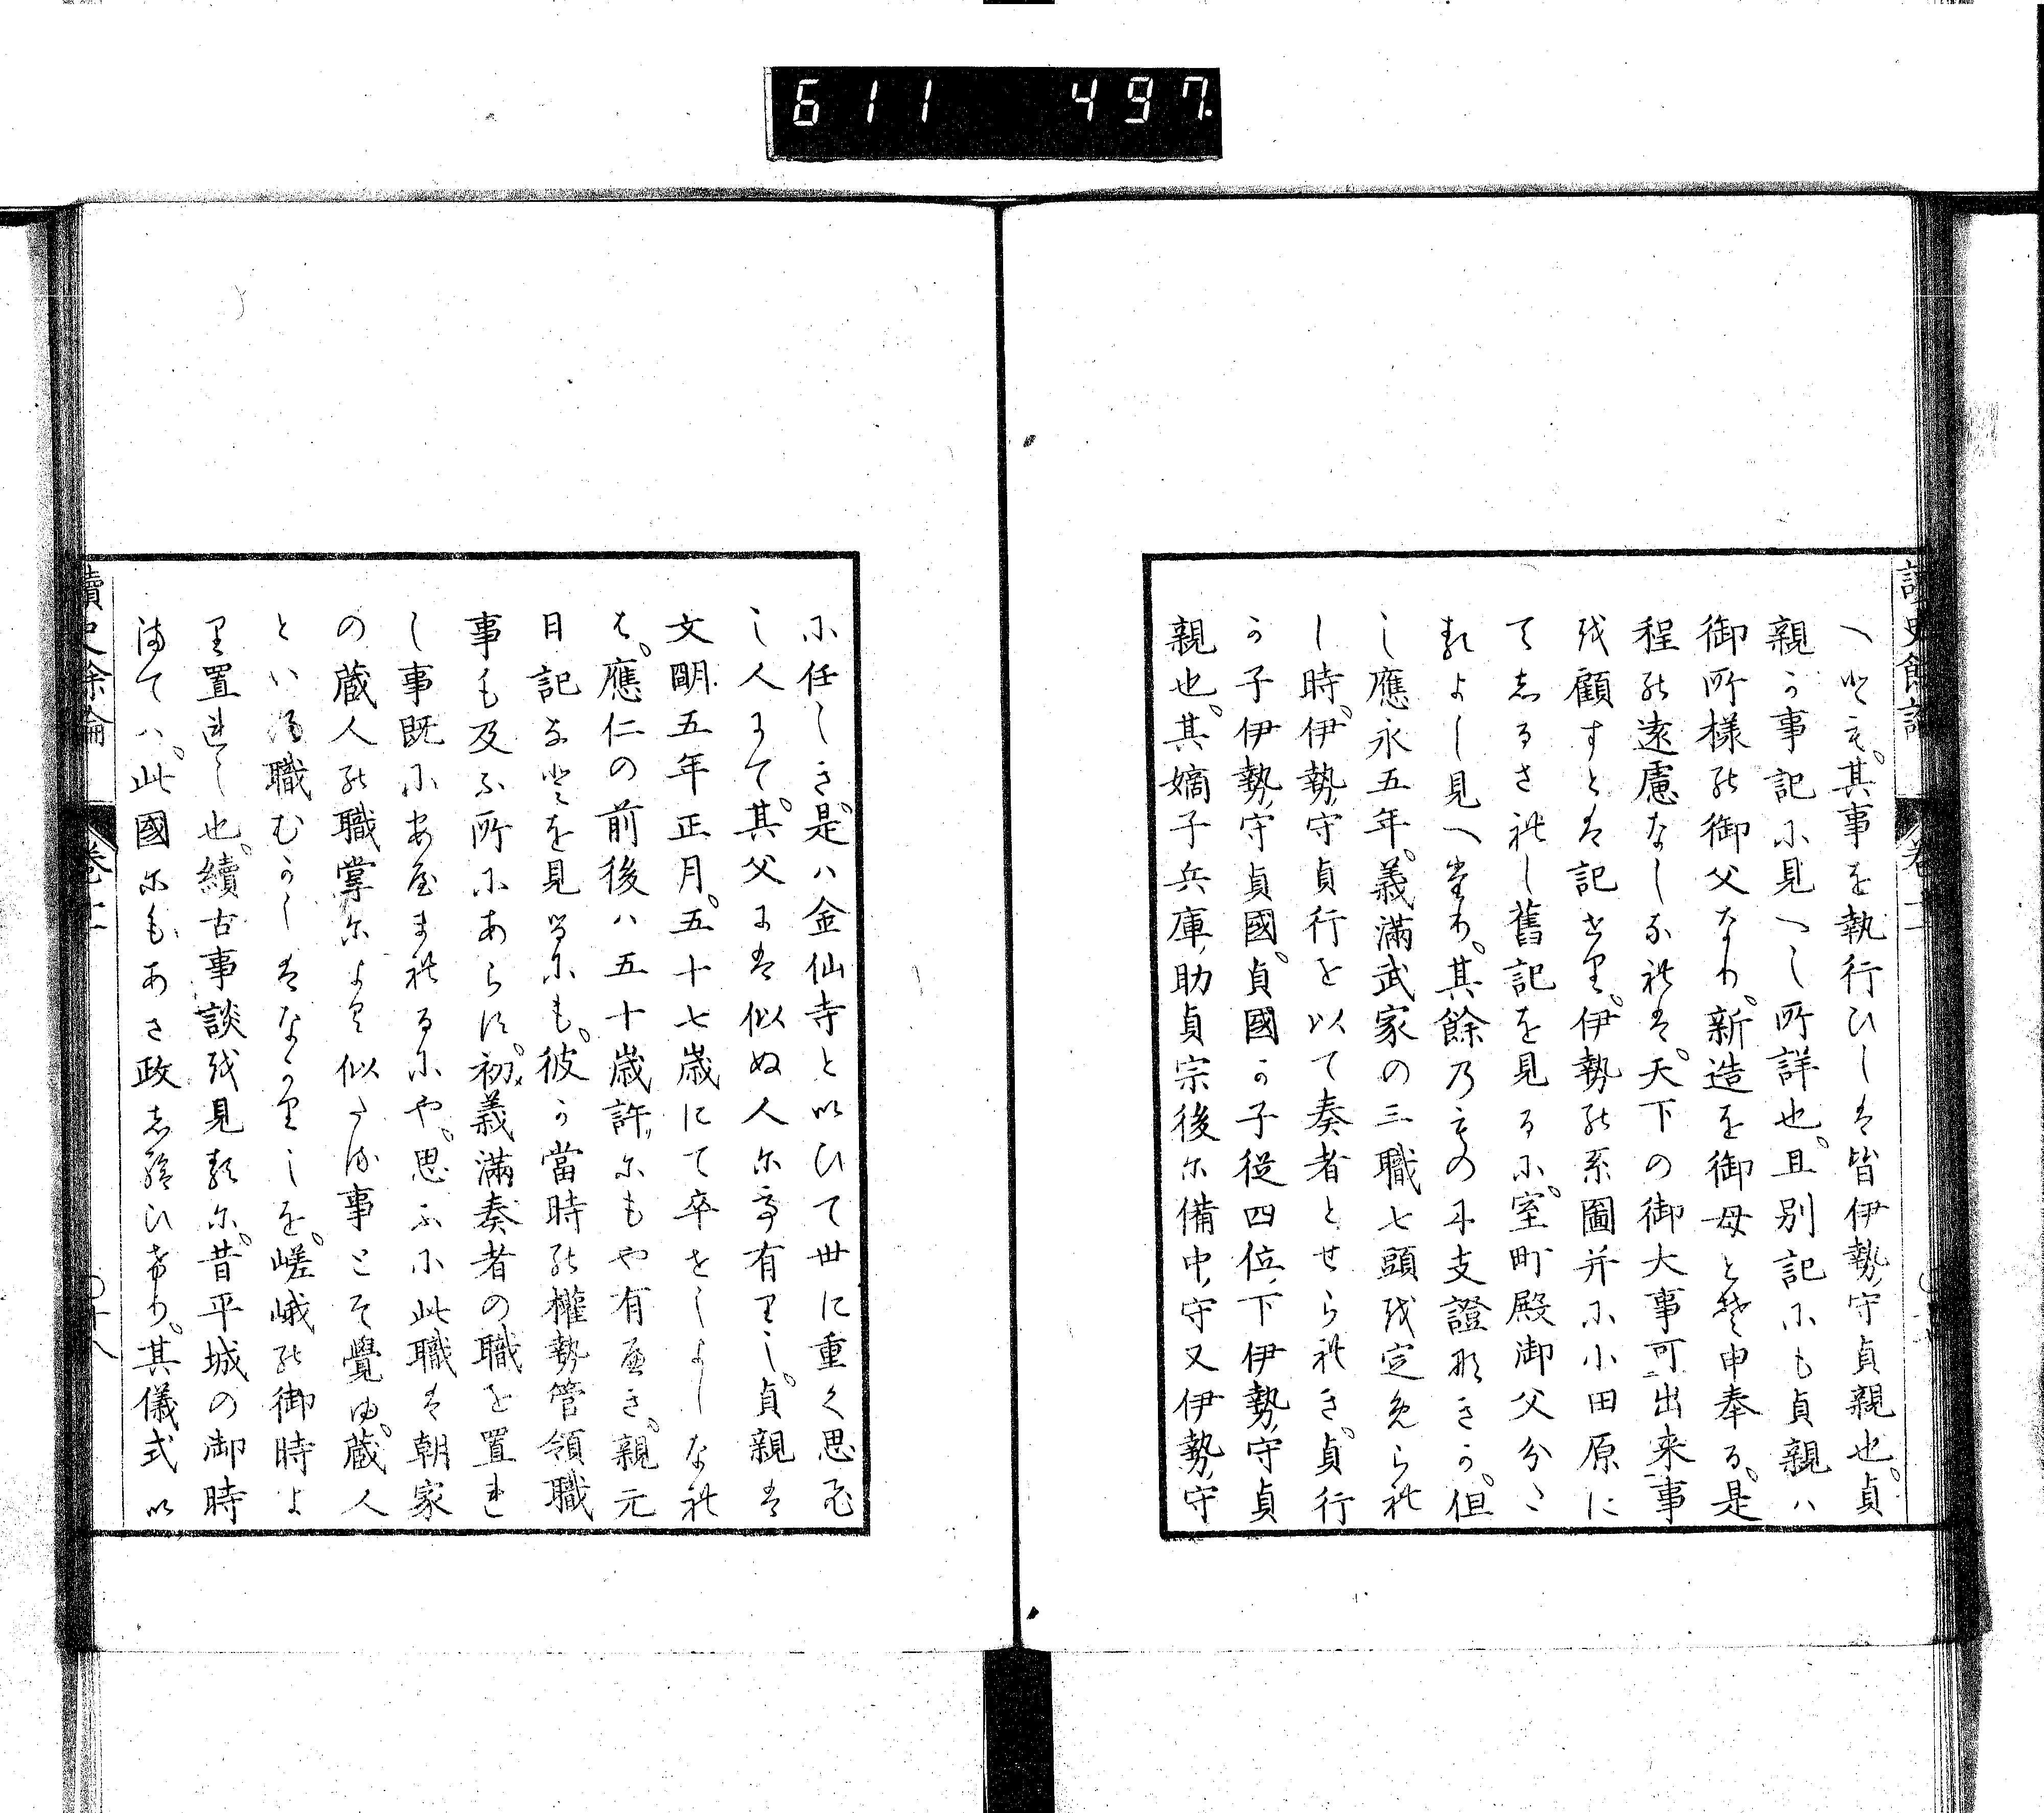 611 497.
讀史餘論 卷十二
へども其事を執行ひしは皆伊勢守貞親也貞
親か事記に見へし所詳也且別記にも貞親ハ
御所様の御父なり新造を御母とぞ申奉る是
程の遠慮なしなれば天下の御大事可出来事
を顧すとは記せり伊勢の系圖并に小田原に
てしるされし舊記を見るに室町殿御父分と
あるよし見へたり其餘乃ものに支證なきか但
し應永五年義滿武家の三職七頭を定められ
し時伊勢守貞行を以て奏者とせられき貞行
か子伊勢守貞國貞國か子従四位下伊勢守貞
親也其嫡子兵庫助貞宗後に備中守又伊勢守
に任しき是ハ金仙寺といひて世に重く思は
し人にて其父には似ぬ人にて有りし貞親は
文明五年正月五十七歳にて卒せしよしなれ
は應仁の前後ハ五十歳許にもや有べき親元
日記などを見るにも彼か當時の權勢管領職
事も及ふ所にあらす初義滿奏者の職を置れ
し事既にあやまれるにや思ふに此職は朝家
の蔵人の職掌によく似たる事とそ覺ゆ蔵人
といふ職むかしはなかりしを嵯峨の御時よ
り置れし也續古事談を見るに昔平城の御時
まてハ此國にもあさ政し給ひけり其儀式い
讀史餘論 卷十二 〇十八